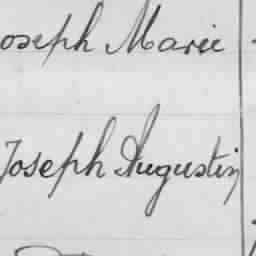 oseph Marie
Joseph Augustin